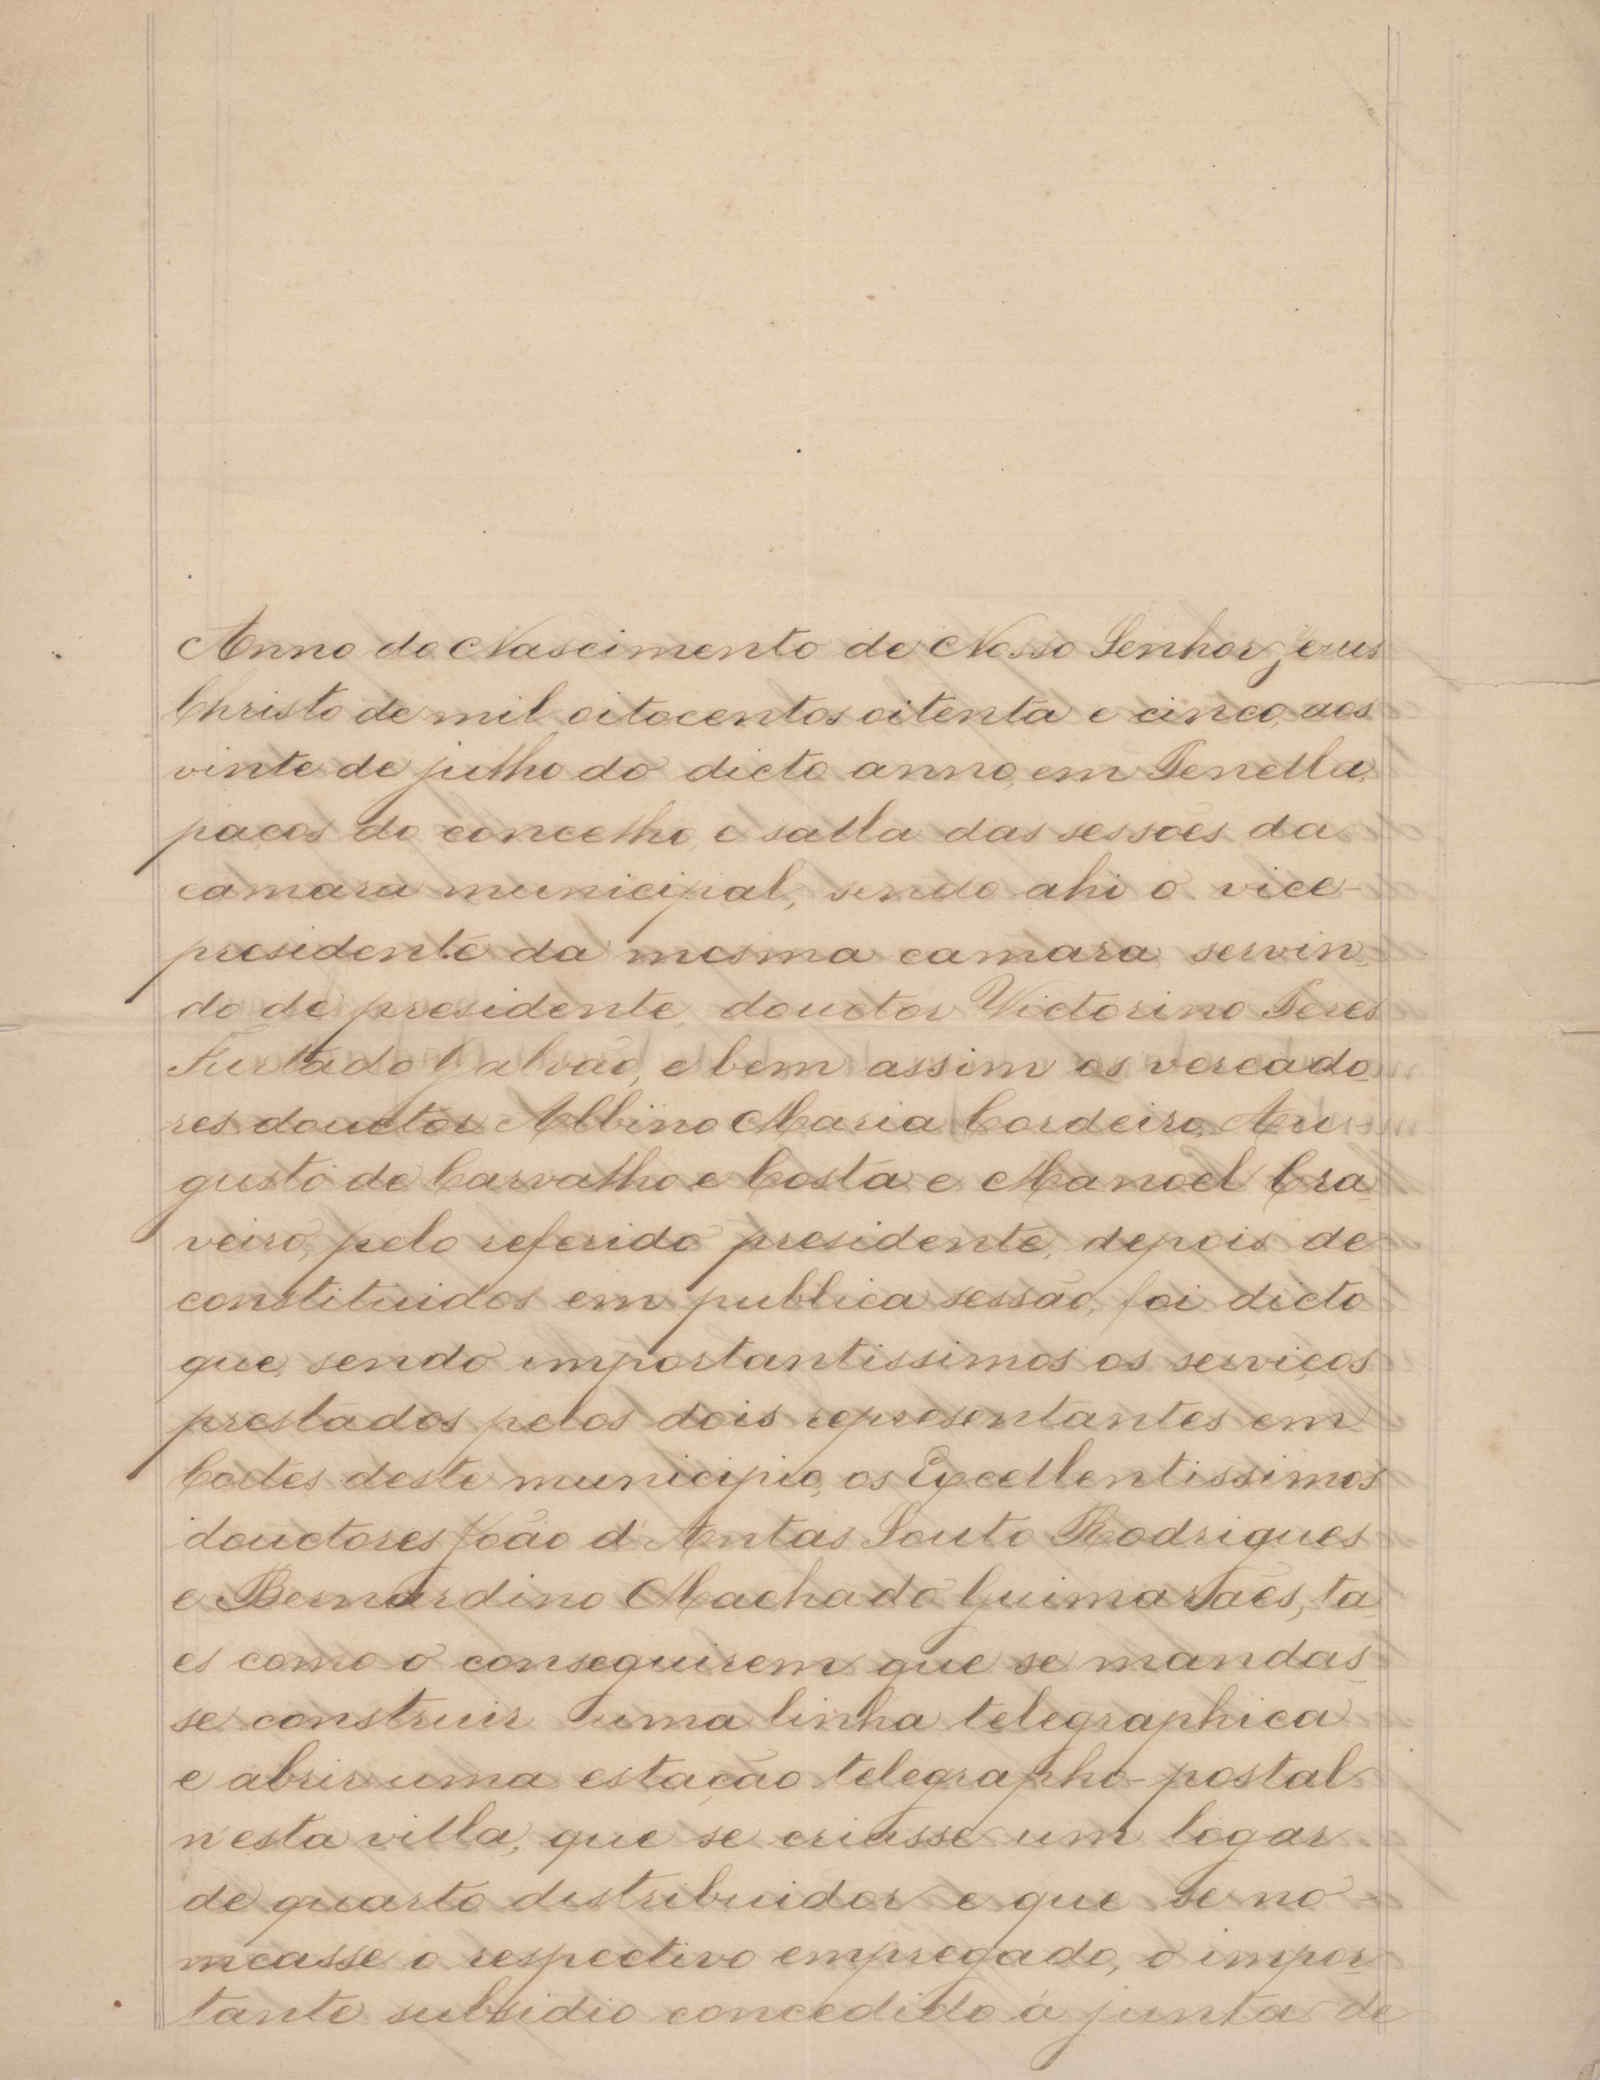 Anno do Nascimento de Nosso Senhor Jesus
Christo de mil oitocentos oitenta e cinco, aos
vinte de julho do dicto anno, em Penella,
paços do concelho, e salla das sessões da
camara municipal, sendo ahi o vice-
presidente da mesma camara servin-
do de presidente, douctor Victorino Peres
Furtado Galvão, e bem assim os vereado-
res douctor Albino Maria Cordeiro, Au-
gusto de Carvalho e Costa e Manoel Cra-
veiro, pelo referido presidente, depois de
constituidos em publica sessão, foi dicto
que, sendo importantissimos os serviços
prestados pelos dois representantes em
Cortes deste municipio, os Excellentissimos
douctores João d'Antas Souto Rodrigues
e Bernardino Machado Guimarães, ta-
es como o conseguirem que se mandas-
se construir uma linha telegraphica
e abrir uma estação telegrapho-postal
n'esta villa, que se criasse um logar
de quarto distribuidor e que se no-
measse o respectivo empregado, o impor-
tante subsidio concedido á junta de